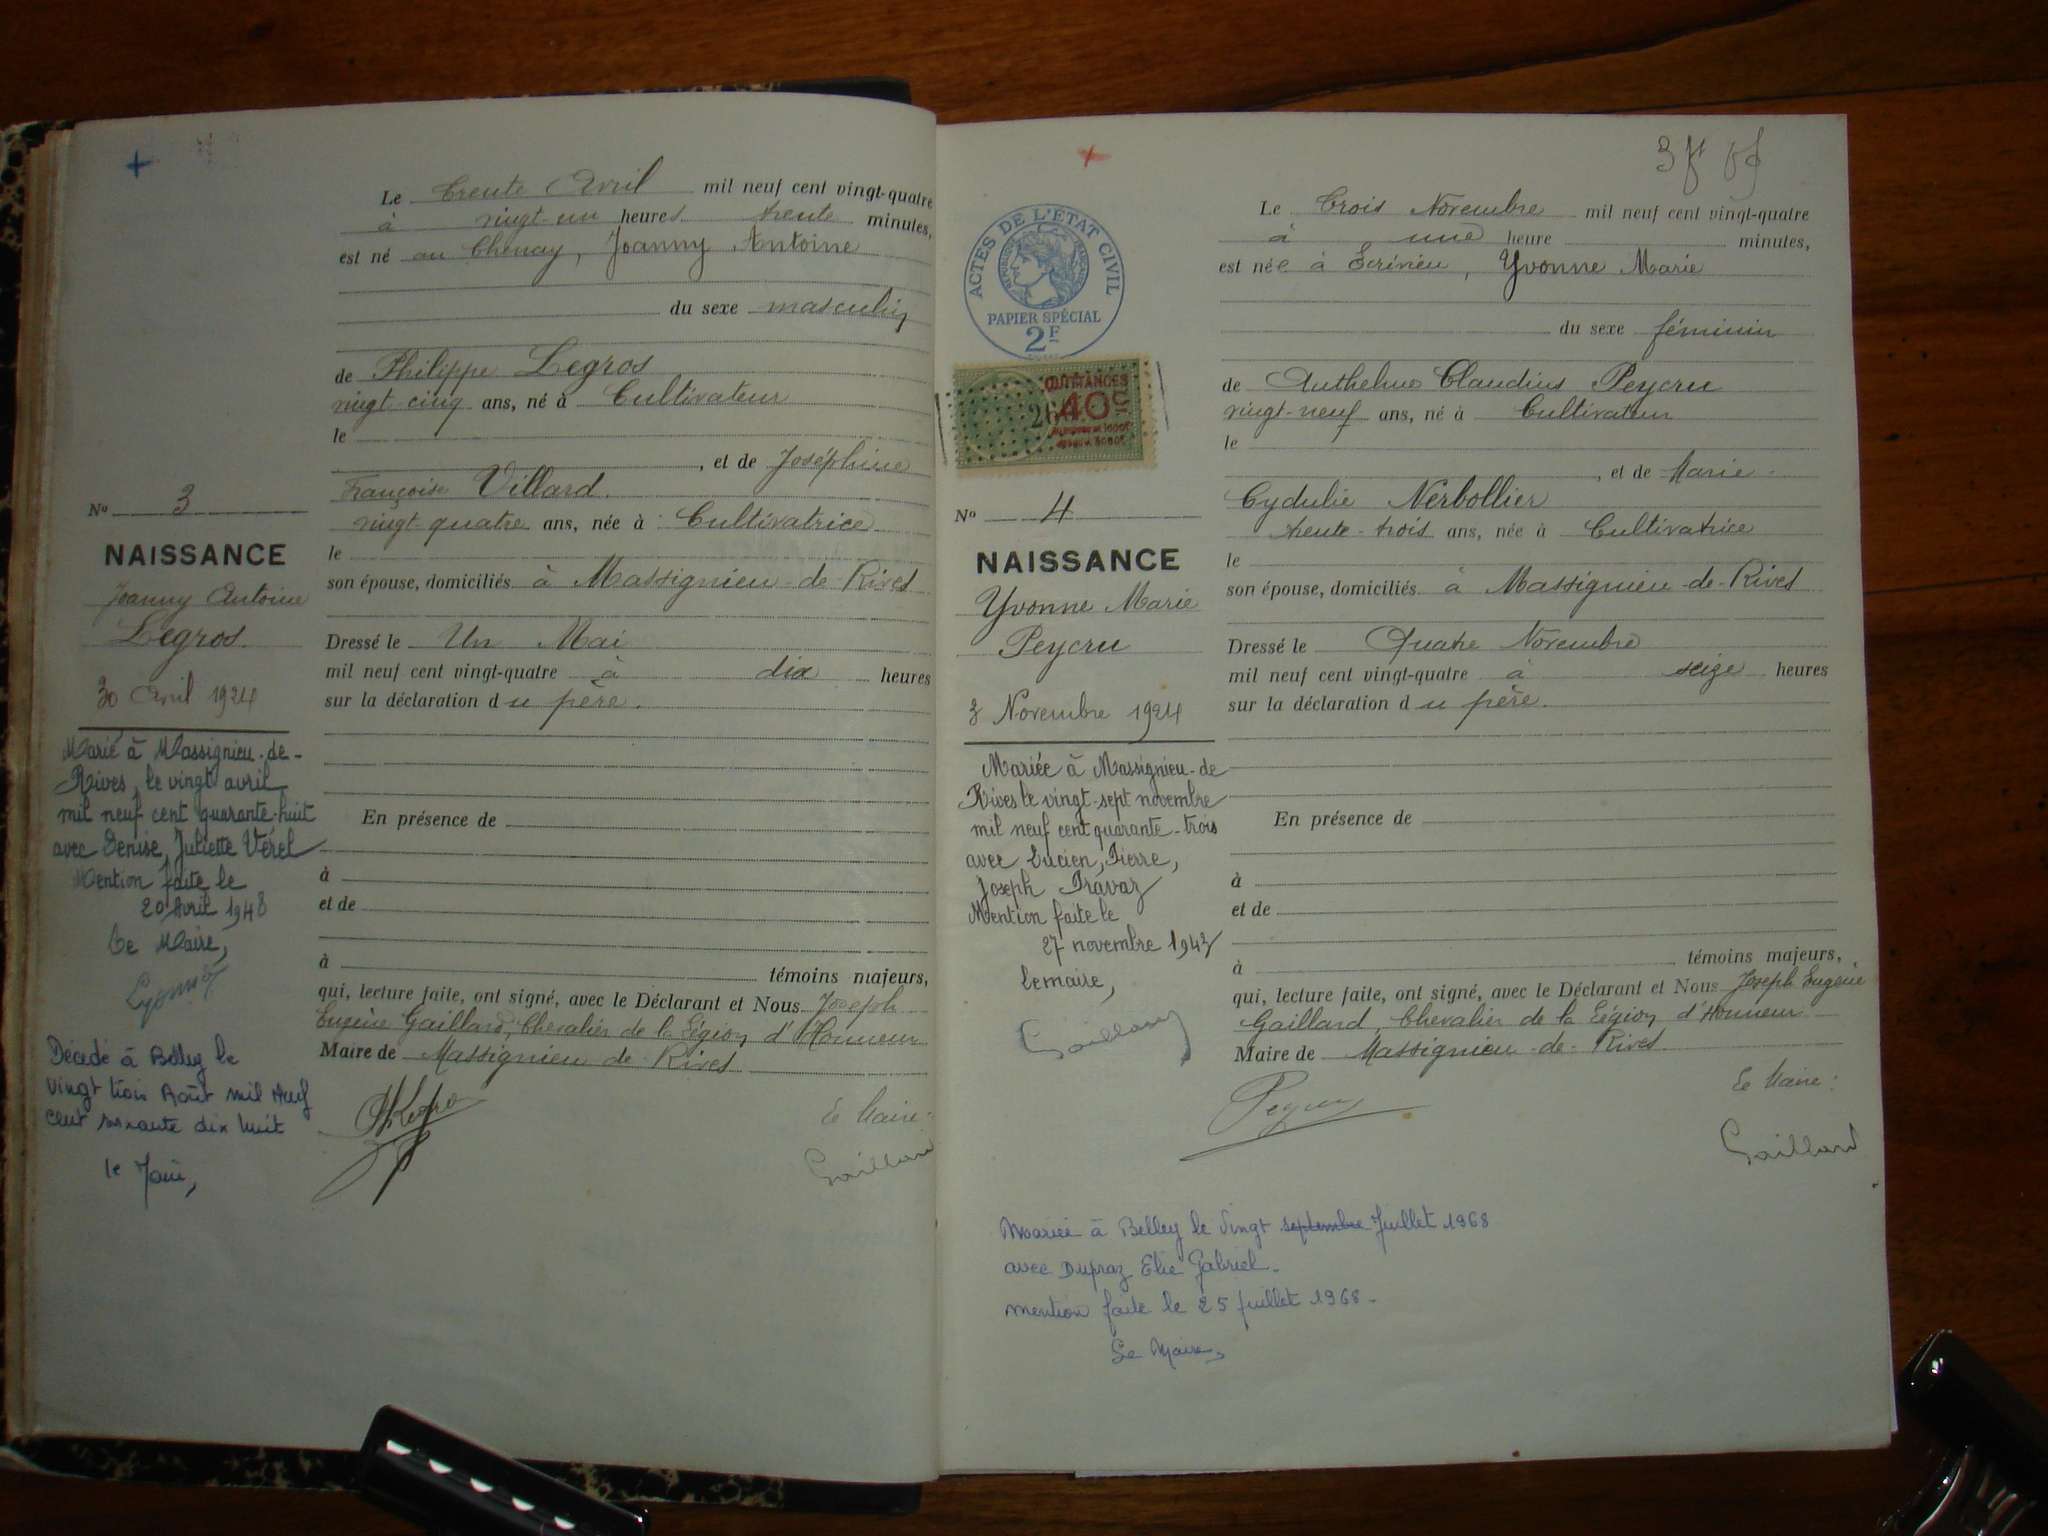 Le Trente Avril mil neuf cent vingt-quatre
à vingt-un heures trente minutes,
est né au Chenay, Joanny Antoine
du sexe masculin
de Philippe Legros
vingt cinq ans, né à Cultivateur
le
, et de Joséphine
Françoise Villard.
vingt-quatre ans, née à Cultivatrice
le
son épouse, domiciliés à Massignieu-de-Rives
Dressé le Un Mai
mil neuf cent vingt-quatre à dix heures
sur la déclaration du père.
En présence de
à
et de
à témoins majeurs,
qui, lecture faite, ont signé, avec le Déclarant et Nous Joseph
Eugène Gaillard, Chevalier de la Légion d'Honneur
Maire de Massignieu de Rives
Le Maire:
Gaillard
No 3
NAISSANCE
Joanny Antoine
Legros.
30 Avril 1924
Marié à Massignieu-de-
Rives, le vingt avril
mil neuf cent quarante-huit
avec Denise, Juliette Vérel
Mention faite le
20 Avril 1948
Le Maire,
Décédé à Belley le
vingt trois Août mil neuf
cent soixante dix huit
le Maire,
3
ACTES DE L'ÉTAT CIVIL
PAPIER SPÉCIAL
2F
QUITTANCES
40c
No 4
NAISSANCE
Yvonne Marie
Peycru
3 Novembre 1924
Mariée à Massignieu-de
Rives le vingt-sept novembre
mil neuf cent quarante-trois
avec Lucien, Pierre,
Joseph Pravaz
Mention faite le
27 novembre 1943
Le maire,
Gaillard
Le Trois Novembre mil neuf cent vingt-quatre
à une heure minutes,
est née à Ecrivieu, Yvonne Marie
du sexe féminin
de Anthelme Claudius Peycru
vingt-neuf ans, né à Cultivateur
le
, et de Marie
Cydulie Nerbollier
trente-trois ans, née à Cultivatrice
le
son épouse, domiciliés à Massignieu-de-Rives
Dressé le Quatre Novembre
mil neuf cent vingt-quatre à seize heures
sur la déclaration du père.
En présence de
à
et de
à témoins majeurs,
qui, lecture faite, ont signé, avec le Déclarant et Nous Joseph Eugène
Gaillard, Chevalier de la Légion d'Honneur
Maire de Massignieu-de-Rives
Le Maire:
Peycru
Gaillard
Mariée à Belley le vingt septembre Juillet 1968
avec Dupraz Elie Gabriel.
mention faite le 25 juillet 1968.
Le Maire,